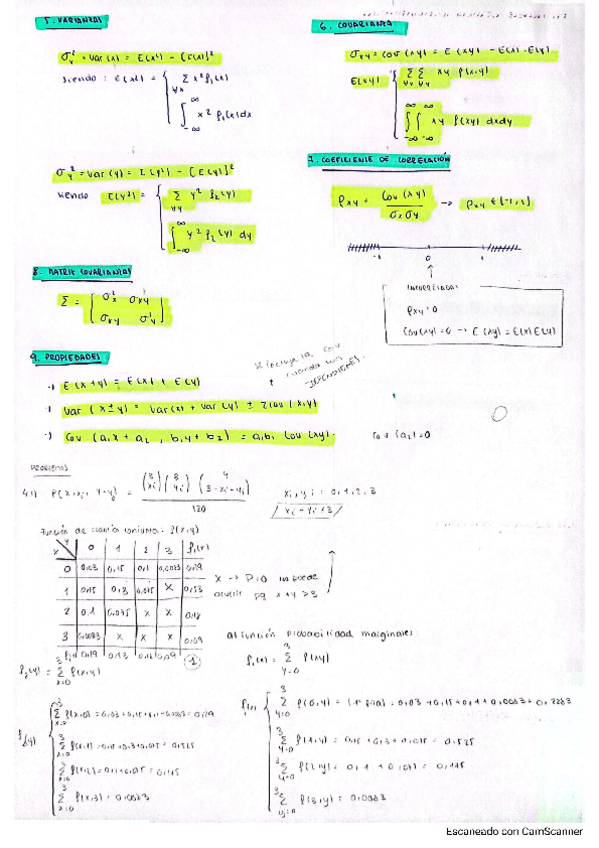 5. VARIANZAS
σx² = Var(x) = E(x²) - [E(x)]²
siendo: E(x²) = { Σ∀x x² P₁(x)
∫-∞^∞ x² P₁(x)dx
σy² = Var(y) = E(y²) - [E(y)]²
siendo E(y²) = { Σ∀y y² P₂(y)
∫-∞^∞ y² P₂(y) dy
6. COVARIANZA
σxy = Cov(xy) = E(xy) - E(x)·E(y)
E(xy) { Σ∀x Σ∀y xy P(x,y)
∫-∞^∞ ∫-∞^∞ xy P(xy) dxdy
7. COEFICIENTE DE CORRELACIÓN
ρxy = Cov(xy) / σx σy → ρxy ∈ [-1,1]
-1 0 1
INCORRELADAS
ρxy = 0
Cov(xy) = 0 → E(xy) = E(x)E(y)
8. MATRIZ COVARIANZAS
Σ = [ σx² σxy
σxy σy² ]
9. PROPIEDADES
·) E(x+y) = E(x) + E(y)
·) Var(x±y) = Var(x) + Var(y) ± 2Cov(x,y)
·) Cov(a₁x + a₂, b₁y + b₂) = a₁b₁ Cov(xy).
incluye la cov
cuando son
DEPENDIENTES.
Cov(a₂) = 0
PROBLEMAS
P(x=xi, y=yi) = (3 xi)(8 yi)(4 3-xi-yi) / 120
xi, yi = 0, 1, 2, 3
Función de cuantía conjunta: P(x,y)
x y 0 1 2 3 P₁(x)
0 0,03 0,15 0,1 0,0083 0,29
1 0,15 0,3 0,075 x 0,53
2 0,1 0,075 x x 0,18
3 0,0083 x x x 0,09
0,29 0,53 0,18 0,09 1
x → P=0 no puede
ocurrir pq x+y>3
a) función probabilidad marginales
P₁(x) = Σ y=0 3 P(xy)
P₂(y) = Σ x=0 3 P(x,y)
P₂(y) { Σ x=0 3 P(x,0) = 0,03 + 0,15 + 0,1 + 0,0083 = 0,29
Σ x=0 3 P(x,1) = 0,15 + 0,3 + 0,075 = 0,525
Σ x=0 3 P(x,2) = 0,1 + 0,075 = 0,175
Σ x=0 3 P(x,3) = 0,0083
P₁(x) { Σ y=0 3 P(0,y) = (1ª fila) = 0,03 + 0,15 + 0,1 + 0,0083 = 0,2883
Σ y=0 3 P(1,y) = 0,15 + 0,3 + 0,075 = 0,525
Σ y=0 3 P(2,y) = 0,1 + 0,075 = 0,175
Σ y=0 3 P(3,y) = 0,0083
Escaneado con CamScanner